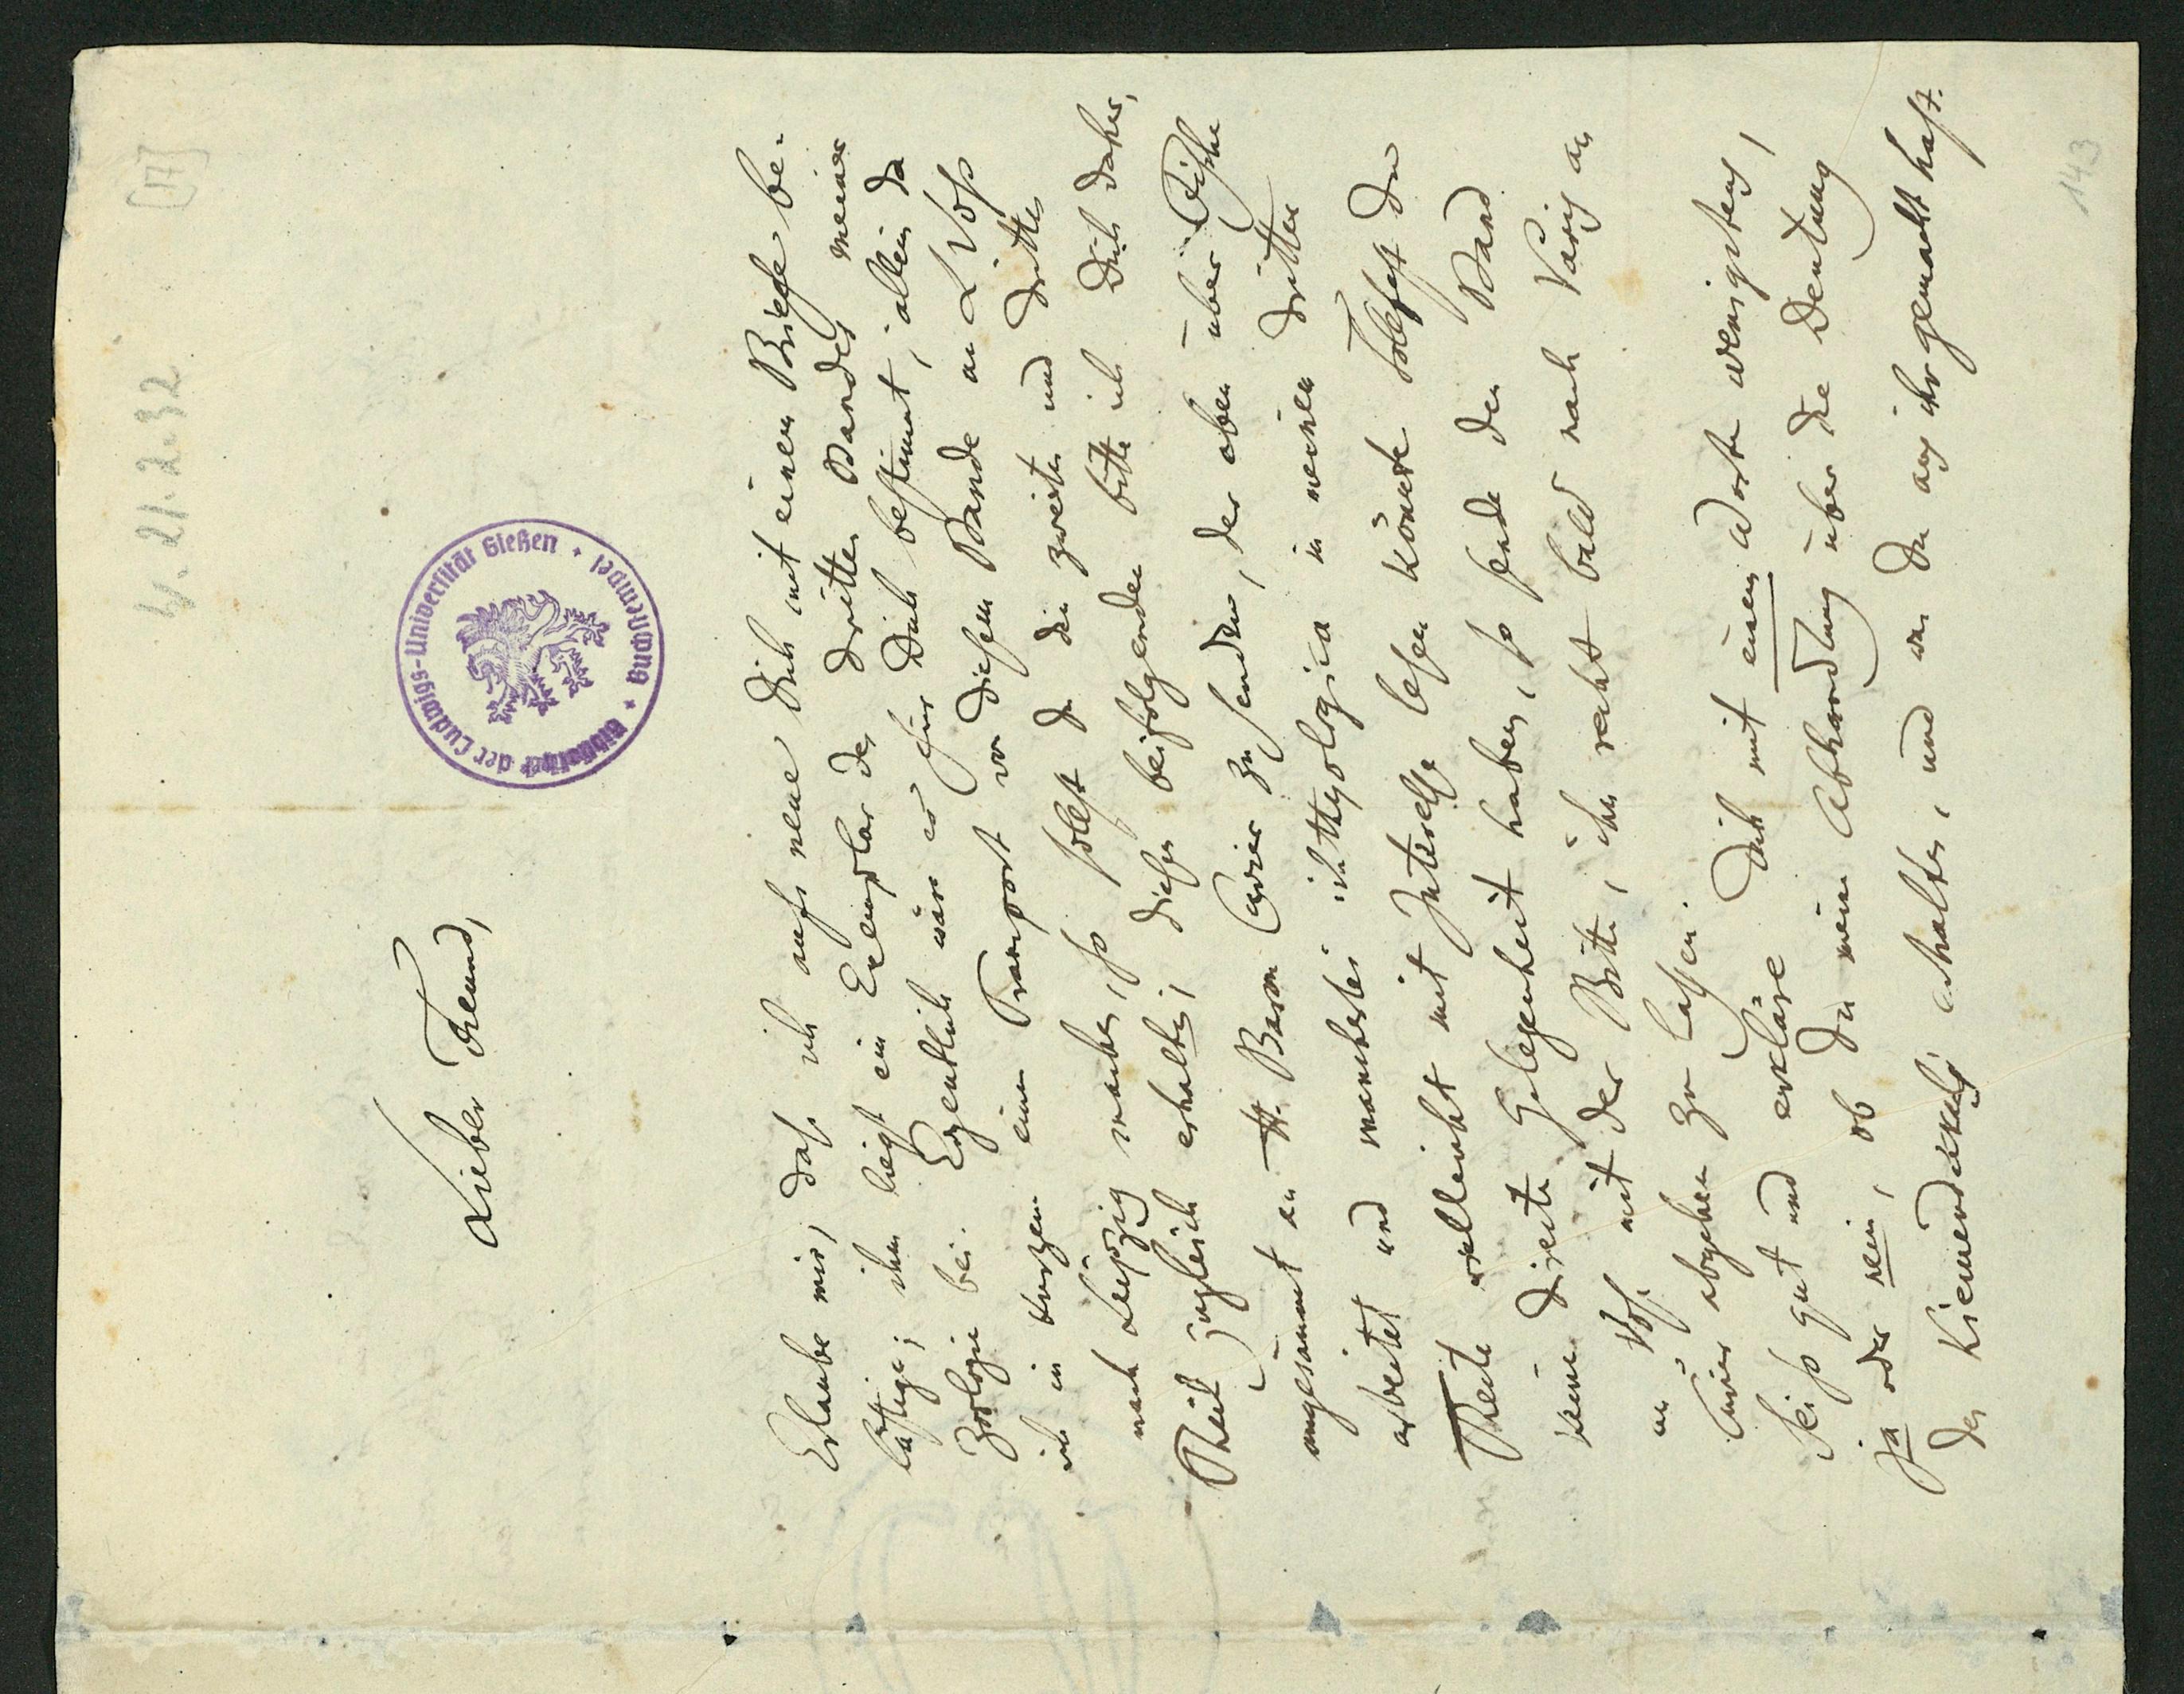 [17]
4. 21.2.32
Bibliothek der Ludwigs-Universität Gießen + Buchstempel +
Lieber Freund,
Erlaube mir, daß ich aufs neue Dich mit einem Briefe be-
lästige; ihm liegt ein Exemplar des dritten Bandes meiner
Zoologie bei. Eigentlich wäre es für Dich bestimmt, allein da
ich in kurzem einen Transport von diesem Bande an L Voß
nach Leipzig mache, so sollst Du den zweiten und dritten
Theil zugleich erhalten; diesen beifolgenden bitte ich Dich daher,
ungesäumt an H. Baron Cuvier zu senden, der eben über Fische
arbeitet und mancherlei ichthyologica in meinem dritten
Theile vielleicht mit Interesse lesen könnte. Solltest Du
keine directe Gelegenheit haben, so sende den Band
an Voß mit der Bitte, ihn recht bald nach Paris an
Cuvier abgehen zu lassen.
Sei so gut und erkläre Dich mit einem Worte wenigstens,
ja oder nein, ob Du meine Abhandlung über die Deutung
der Kiemendeckel erhalten, und was Du aus ihr gemacht hast.
143